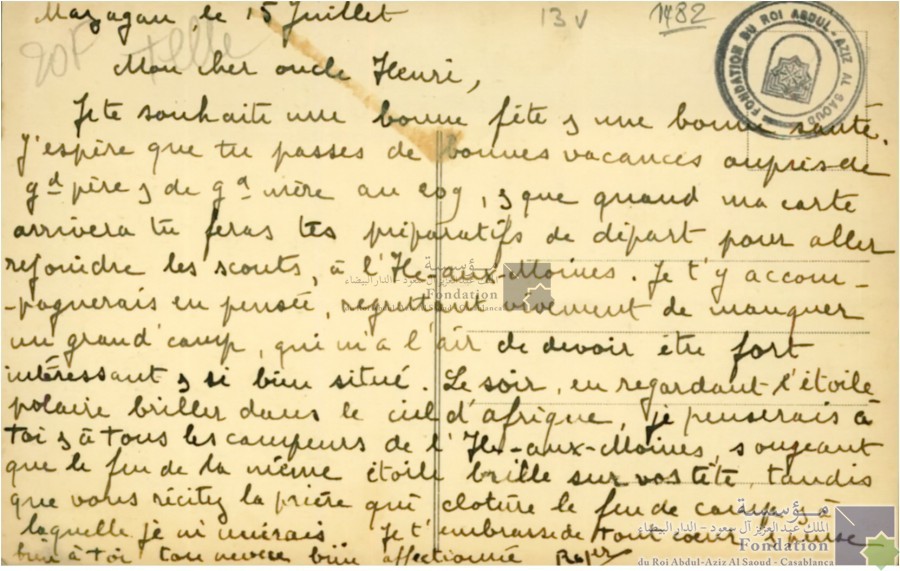 Mazagan, le 15 Juillet
13 v
1482
20F
FONDATION DU ROI ABDUL-AZIZ AL SAOUD
Mon cher oncle Henri,
Je te souhaite une bonne fête & une bonne santé.
J'espère que tu passes de bonnes vacances auprès de
gd père & de gd mère au coq, & que quand ma carte
arrivera tu feras tes préparatifs de départ pour aller
rejoindre les scouts, à l'Ile-aux-Moines. Je t'y accom-
-pagnerais en pensée, regrettant vivement de manquer
un grand camp, qui m'a l'air de devoir être fort
intéressant & si bien situé. Le soir, en regardant l'étoile
polaire briller dans le ciel d'afrique, je penserais à
toi & à tous les campeurs de l'Ile-aux-Moines, songeant
que le feu de la même étoile brille sur vos tête, tandis
que vous récitez la prière qui cloture le feu de camp, à
laquelle je m'unirais. Je t'embrasse de tout coeur, & pense
bien à toi ton neveu bien affectionné Roger
مؤسسة
الملك عبد العزيز آل سعود - الدار البيضاء
Fondation
du Roi Abdul Aziz Al Saoud - Casablanca
مؤسسة
الملك عبد العزيز آل سعود - الدار البيضاء
Fondation
du Roi Abdul Aziz Al Saoud - Casablanca